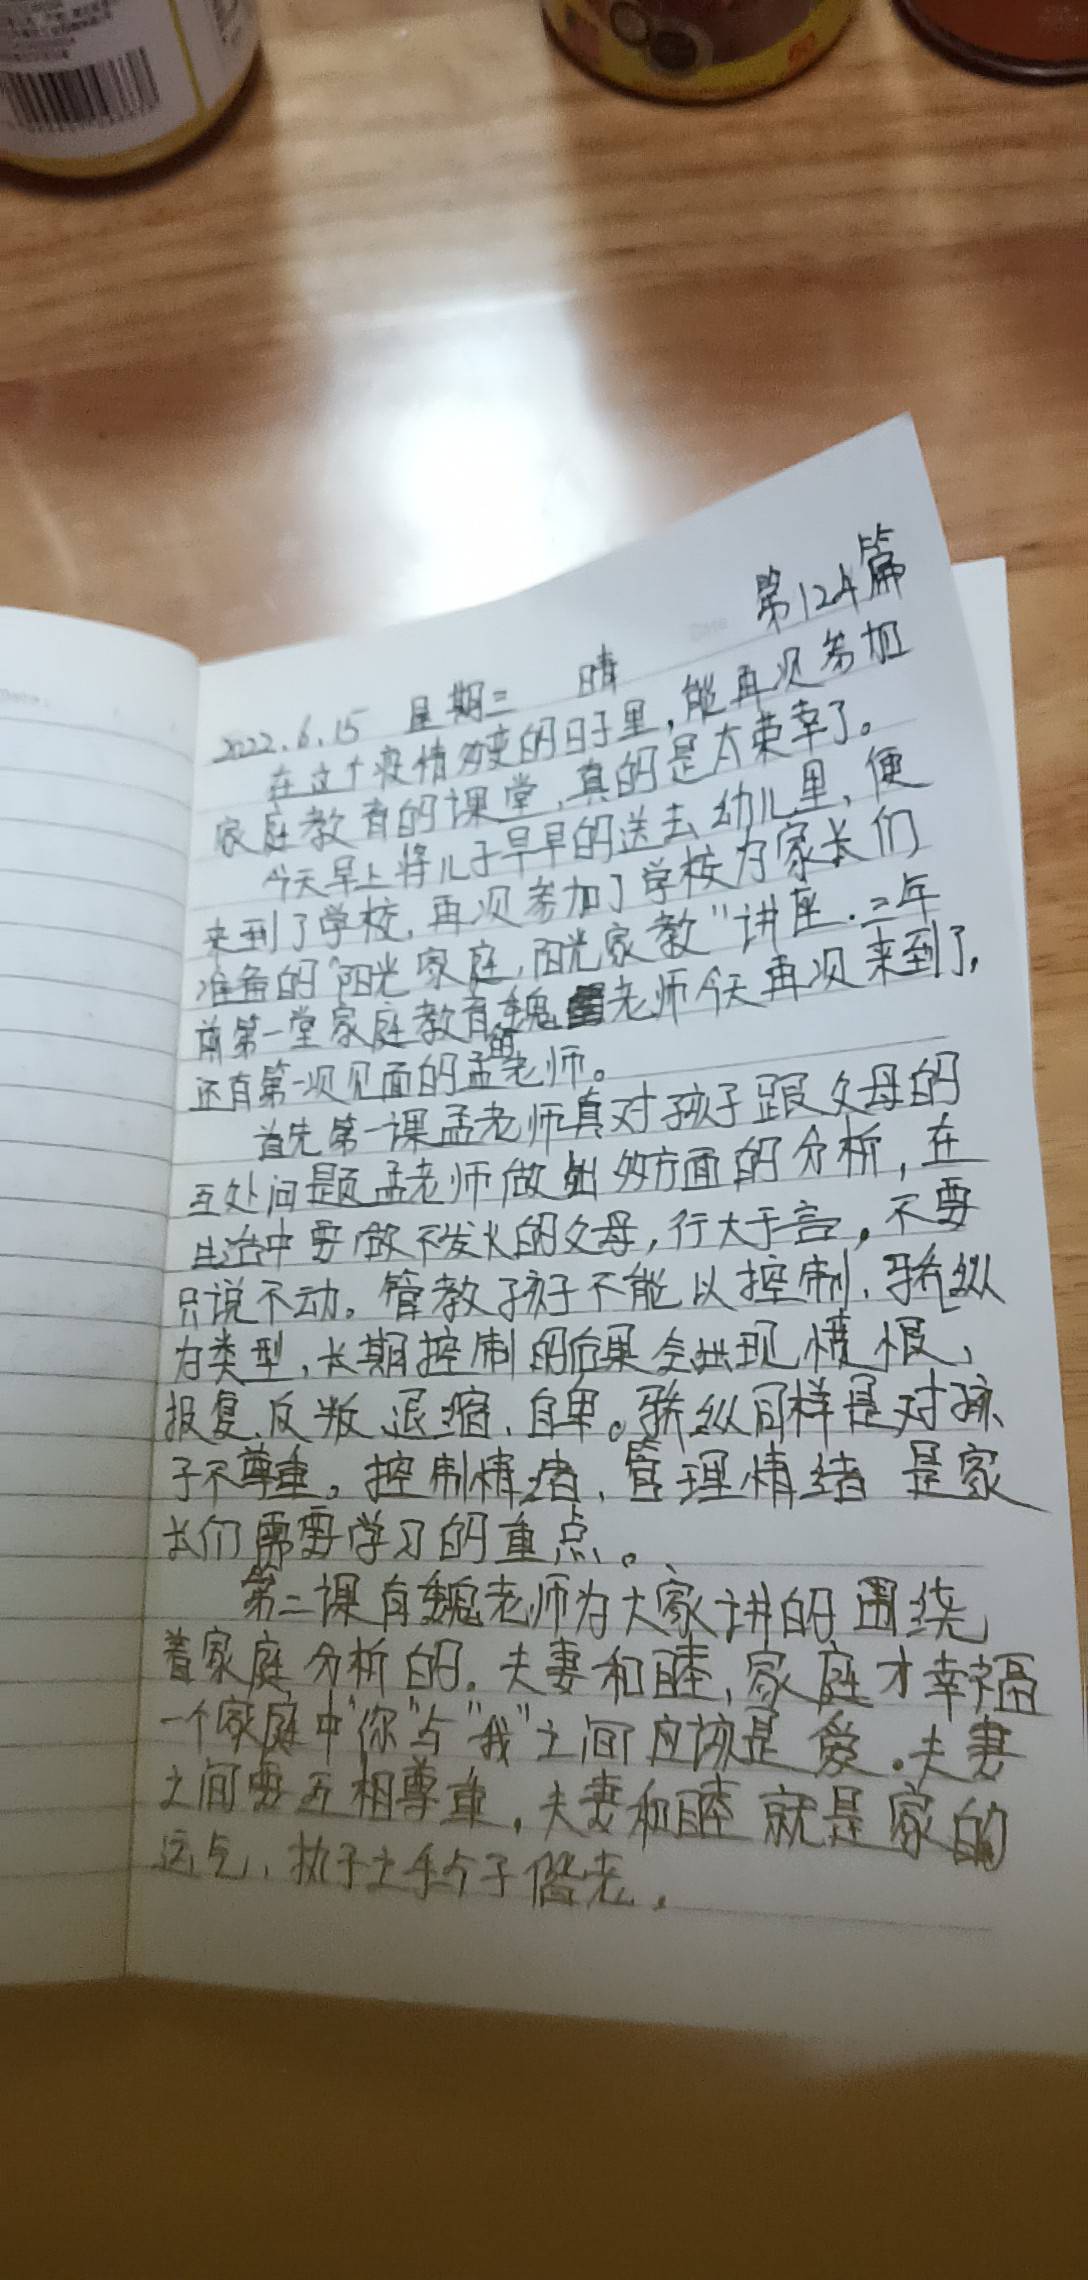 第124篇
2022.6.15 星期二 晴
在这个疫情多变的日子里,能再次参加
家庭教育的课堂,真的是太荣幸了。
今天早上将儿子早早的送去幼儿里,便
来到了学校,再次参加了学校为家长们
准备的“阳光家庭,阳光家教”讲座.二年
前第一堂家庭教育的魏老师今天再次来到了,
还有第一次见面的孟老师。
首先第一课孟老师真对孩子跟父母的
互处问题孟老师做出多方面的分析,在
生活中要做不发火的父母,行大于言。不要
只说不动。管教孩子不能以控制、骄纵
为类型,长期控制的后果会出现愤恨、
报复、反叛、退缩、自卑。骄纵同样是对孩
子不尊重。控制情绪、管理情绪是家
长们需要学习的重点。
第二课有魏老师为大家讲的围绕
着家庭分析的。夫妻和睦,家庭才幸福
一个家庭中“你”与“我”之间应该是爱.夫妻
之间要互相尊重,夫妻和睦就是家的
运气,执子之手与子偕老.